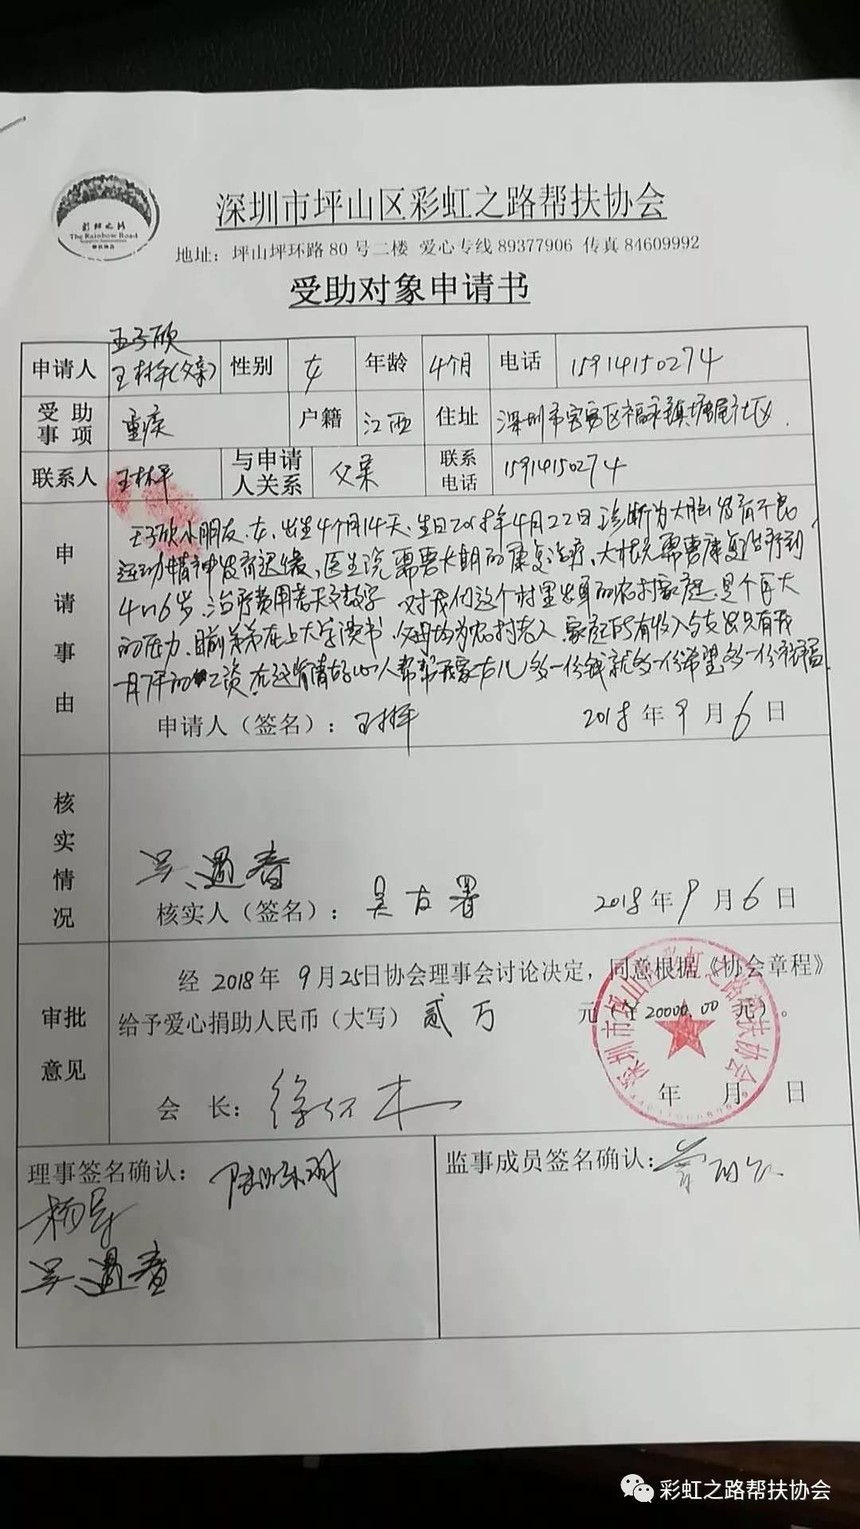 彩虹之路
The Rainbow Road
深圳市坪山区彩虹之路帮扶协会
地址：坪山坪环路80号二楼 爱心专线89377906 传真84609992
受助对象申请书
王子欣
申请人 王林平(父亲) 性别 女 年龄 4个月 电话 15914150274
受助事项 重疾 户籍 江西 住址 深圳市宝安区福永镇塘尾社区.
联系人 王林平 与申请人关系 父亲 联系电话 15914150274
申请事由
王子欣小朋友、女、出生4个月14天、生日2018年4月22日诊断为大脑发育不良
运动精神发育迟缓、医生说需要长期的康复治疗、大概需要康复治疗到
4到6岁、治疗费用着天文数字 对我们这个村里出身的农村家庭是个巨大
的压力、目前弟弟在上大学读书、父母均为农村老人、家庭所有收入与支出只有我
一人的工资、在这有请好心人帮帮我家女儿多一份钱就多一份希望多一份祝福
申请人（签名）：王林平 2018年9月6日
核实情况
吴遇春
核实人（签名）：吴友署 2018年9月6日
审批意见
经2018年9月25日协会理事会讨论决定，同意根据《协会章程》
给予爱心捐助人民币（大写）贰万 元（￥20000.00元）。
会 长： 年 月 日
深圳市坪山区彩虹之路帮扶协会
理事签名确认：
监事成员签名确认：
杨军
吴遇春
彩虹之路帮扶协会